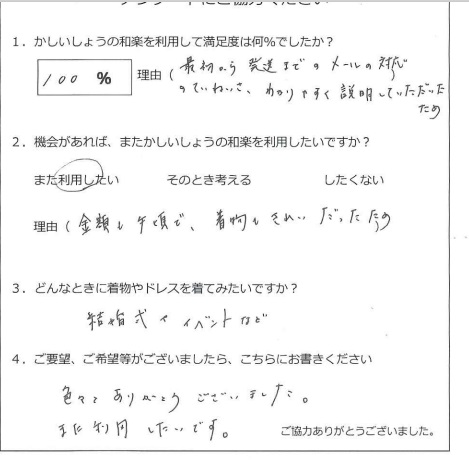 アンケートにご協力ください
1．かしいしょうの和楽を利用して満足度は何％でしたか？
100 ％ 理由（最初から発送までのメールの対応
のていねいさ、わかりやすく説明していただいた
ため
2．機会があれば、またかしいしょうの和楽を利用したいですか？
また利用したい そのとき考える したくない
理由（金額も手頃で、着物もきれいだったため
3．どんなときに着物やドレスを着てみたいですか？
結婚式やイベントなど
4．ご要望、ご希望等がございましたら、こちらにお書きください
色々とありがとうございました。
また利用したいです。
ご協力ありがとうございました。